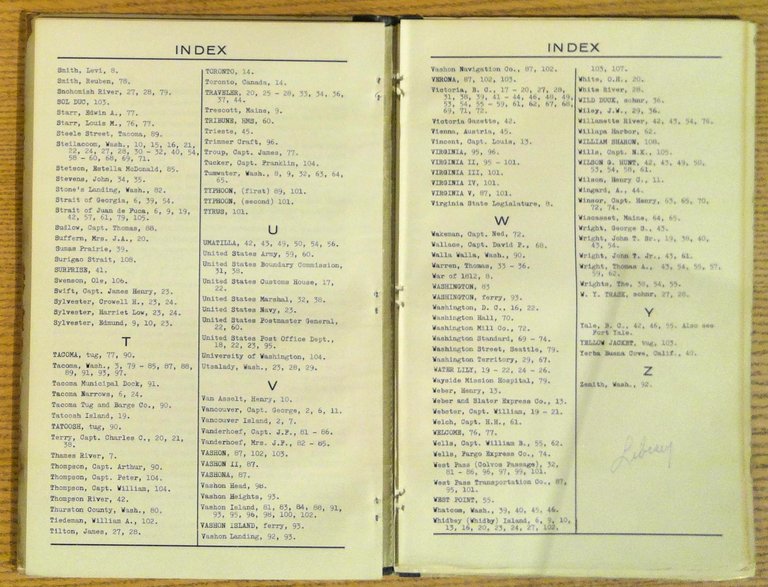 INDEX
Smith, Levi, 8.
Smith, Reuben, 78.
Snohomish River, 27, 28, 79.
SOL DUC, 103.
Starr, Edwin A., 77.
Starr, Louis M., 76, 77.
Steele Street, Tacoma, 89.
Steilacoom, Wash., 10, 15, 16, 21,
22, 24, 27, 28, 30 - 32, 40, 54,
58 - 60, 68, 69, 71.
Stetson, Estella McDonald, 85.
Stevens, John, 34, 35.
Stone's Landing, Wash., 82.
Strait of Georgia, 6, 39, 54.
Strait of Juan de Fuca, 6, 9, 19,
42, 57, 61, 79, 105.
Sudlow, Capt. Thomas, 88.
Suffern, Mrs. J.A., 20.
Sumas Prairie, 39.
Surigao Strait, 108.
SURPRISE, 41.
Swenson, Ole, 106.
Swift, Capt. James Henry, 23.
Sylvester, Crowell H., 23, 24.
Sylvester, Harriet Low, 23, 24.
Sylvester, Edmund, 9, 10, 23.
T
TACOMA, tug, 77, 90.
Tacoma, Wash., 3, 79 - 85, 87, 88,
89, 91, 93, 97.
Tacoma Municipal Dock, 91.
Tacoma Narrows, 6, 24.
Tacoma Tug and Barge Co., 90.
Tatoosh Island, 19.
TATOOSH, tug, 90.
Terry, Capt. Charles C., 20, 21,
38.
Thames River, 7.
Thompson, Capt. Arthur, 90.
Thompson, Capt. Peter, 104.
Thompson, Capt. William, 104.
Thompson River, 42.
Thurston County, Wash., 80.
Tiedeman, William A., 102.
Tilton, James, 27, 28.
TORONTO, 14.
Toronto, Canada, 14.
TRAVELER, 20, 25 - 28, 33, 34, 36,
37, 44.
Trescott, Maine, 9.
TRIBUNE, HMS, 60.
Trieste, 45.
Trimmer Craft, 96.
Troup, Capt. James, 77.
Tucker, Capt. Franklin, 104.
Tumwater, Wash., 8, 9, 32, 63, 64,
65.
TYPHOON, (first) 89, 101.
TYPHOON, (second) 101.
TYRUS, 101.
U
UMATILLA, 42, 43, 49, 50, 54, 56.
United States Army, 59, 60.
United States Boundary Commission,
31, 38.
United States Customs House, 17,
22.
United States Marshal, 32, 38.
United States Navy, 23.
United States Postmaster General,
22, 60.
United States Post Office Dept.,
18, 22, 23, 95.
University of Washington, 104.
Utsalady, Wash., 23, 28, 29.
V
Van Asselt, Henry, 10.
Vancouver, Capt. George, 2, 6, 11.
Vancouver Island, 2, 7.
Vanderhoef, Capt. J.F., 81 - 86.
Vanderhoef, Mrs. J.F., 82 - 85.
VASHON, 87, 102, 103.
VASHON II, 87.
VASHONA, 87.
Vashon Head, 98.
Vashon Heights, 93.
Vashon Island, 81, 83, 84, 88, 91,
93, 95, 96, 98, 100, 102.
VASHON ISLAND, ferry, 93.
Vashon Landing, 92, 93.
INDEX
Vashon Navigation Co., 87, 102.
VERONA, 87, 102, 103.
Victoria, B. C., 17 - 20, 27, 28,
31, 38, 39, 41 - 44, 46, 48, 49,
53, 54, 55 - 59, 61, 62, 67, 68,
69, 71, 72.
Victoria Gazette, 42.
Vienna, Austria, 45.
Vincent, Capt. Louis, 13.
VIRGINIA, 95, 96.
VIRGINIA II, 95 - 101.
VIRGINIA III, 101.
VIRGINIA IV, 101.
VIRGINIA V, 87, 101.
Virginia State Legislature, 8.
W
Wakeman, Capt. Ned, 72.
Wallace, Capt. David P., 68.
Walla Walla, Wash., 90.
Warren, Thomas, 33 - 36.
War of 1812, 8.
WASHINGTON, 83
WASHINGTON, ferry, 93.
Washington, D. C., 16, 22.
Washington Hall, 70.
Washington Mill Co., 72.
Washington Standard, 69 - 74.
Washington Street, Seattle, 79.
Washington Territory, 29, 67.
WATER LILY, 19 - 22, 24 - 26.
Wayside Mission Hospital, 79.
Weber, Henry, 13.
Weber and Slater Express Co., 13.
Webster, Capt. William, 19 - 21.
Welch, Capt. H.H., 61.
WELCOME, 76, 77.
Wells, Capt. William B., 55, 62.
Wells, Fargo Express Co., 74.
West Pass (Colvos Passage), 32,
81 - 86, 96, 97, 99, 101.
West Pass Transportation Co., 87,
95, 101.
WEST POINT, 55.
Whatcom, Wash., 39, 40, 45, 46.
Whidbey (Whidby) Island, 6, 9, 10,
13, 16, 20, 23, 24, 27, 102,
103, 107.
White, C.H., 20.
White River, 28.
WILD DUCK, schnr, 36.
Wiley, J.W., 29, 36.
Willamette River, 42, 43, 54, 76.
Willapa Harbor, 62.
WILLIAM SHARON, 108.
Wills, Capt. N.K., 105.
WILSON G. HUNT, 42, 43, 49, 50,
53, 54, 58, 61.
Wilson, Henry C., 11.
Wingard, A., 44.
Winsor, Capt. Henry, 63, 65, 70,
72, 74.
Wiscasset, Maine, 64, 65.
Wright, George S., 43.
Wright, John T. Sr., 19, 38, 40,
43, 54.
Wright, John T. Jr., 43, 61.
Wright, Thomas A., 43, 54, 55, 57,
59, 62.
Wrights, The, 38, 54, 55.
W. Y. TRASK, schnr, 27, 28.
Y
Yale, B. C., 42, 46, 55. Also see
Fort Yale.
YELLOW JACKET, tug, 103.
Yerba Buena Cove, Calif., 40.
Z
Zenith, Wash., 92.